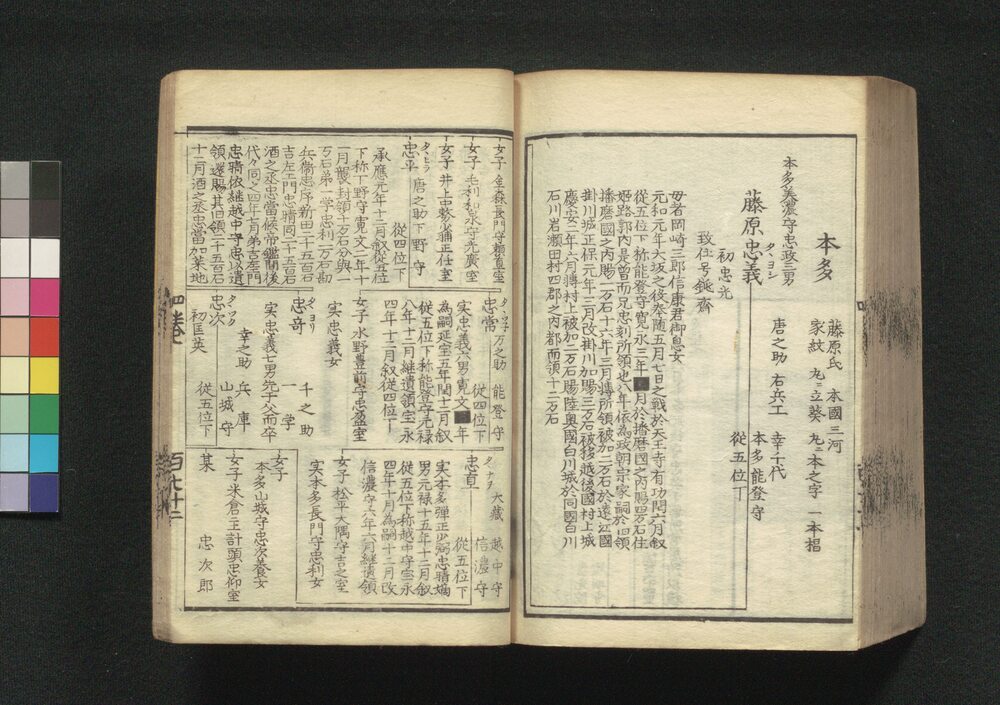 本多
藤原氏 本國三河
家紋 丸ニ立葵 丸ニ本之字 一本杉
本多美濃守忠政三男
藤原忠義
タヾヨシ
唐之助 右兵工
幸千代
本多能登守
從五位下
初忠光
致仕号鈍齋
母者岡崎三郎信康君御息女
元和元年大坂之後奉随五月七日之戰於天王寺有功閏六月叙
從五位下称能登守寛永三年月於播磨國之内賜四万石住
姫路郭内是曽而兄忠刻所領也八年依為政朝宗家嗣於旧領
播磨國之内賜一万石十六年三月轉所領被加二万石於遠江國
掛川城正保元年三月改掛川加賜三万石被移越後國村上城
慶安二年六月轉村上被加二万石賜陸奥國白川城於同國白川
石川岩瀬田村四郡之内都而領十二万石
女子 金森長門守頼直室
女子 毛利和泉守光廣室
女子 井上中務少輔正任室
タヾヒラ
忠平 唐之助 下野守
從四位下
承應元年十二月叙從五位
下称下野守寛文二年十
一月襲封領十万石分與一
万石弟一学忠利一万石勘
兵衛忠序新田二千五百石
吉左エ門忠晴同二千五百石
酒之丞忠當候帝鑑間後
代々同之四年七月弟吉左門
忠晴依継越中守忠以遺
領還賜其旧領二千五百石
十二月酒之丞忠當加菜地
タヾツネ
忠常 万之助 能登守
從四位下
実忠義六男寛文年
為嗣延宝五年閏十二月叙
從五位下称能登守元禄
八年十二月継遺領宝永
四年十二月叙從四位下
女子 水野豊前守忠盈室
実忠義女
タヾヨリ
忠奇 千之助
一学
実忠義七男先于父而卒
タヾツグ
忠次 幸之助 兵庫
初匡英 山城守
從五位下
タヾナヲ
忠直 大藏 越中守
信濃守
從五位下
実本多彈正少弼忠晴嫡
男元禄十五年十二月叙
從五位下称越中守宝永
四年十月為嗣十二月改
信濃守六年六月継遺領
女子 松平大隅守吉之室
実本多長門守忠利女
女子
本多山城守忠次養女
女子 米倉主計頭忠仰室
某 忠次郎
四巻
百九十二